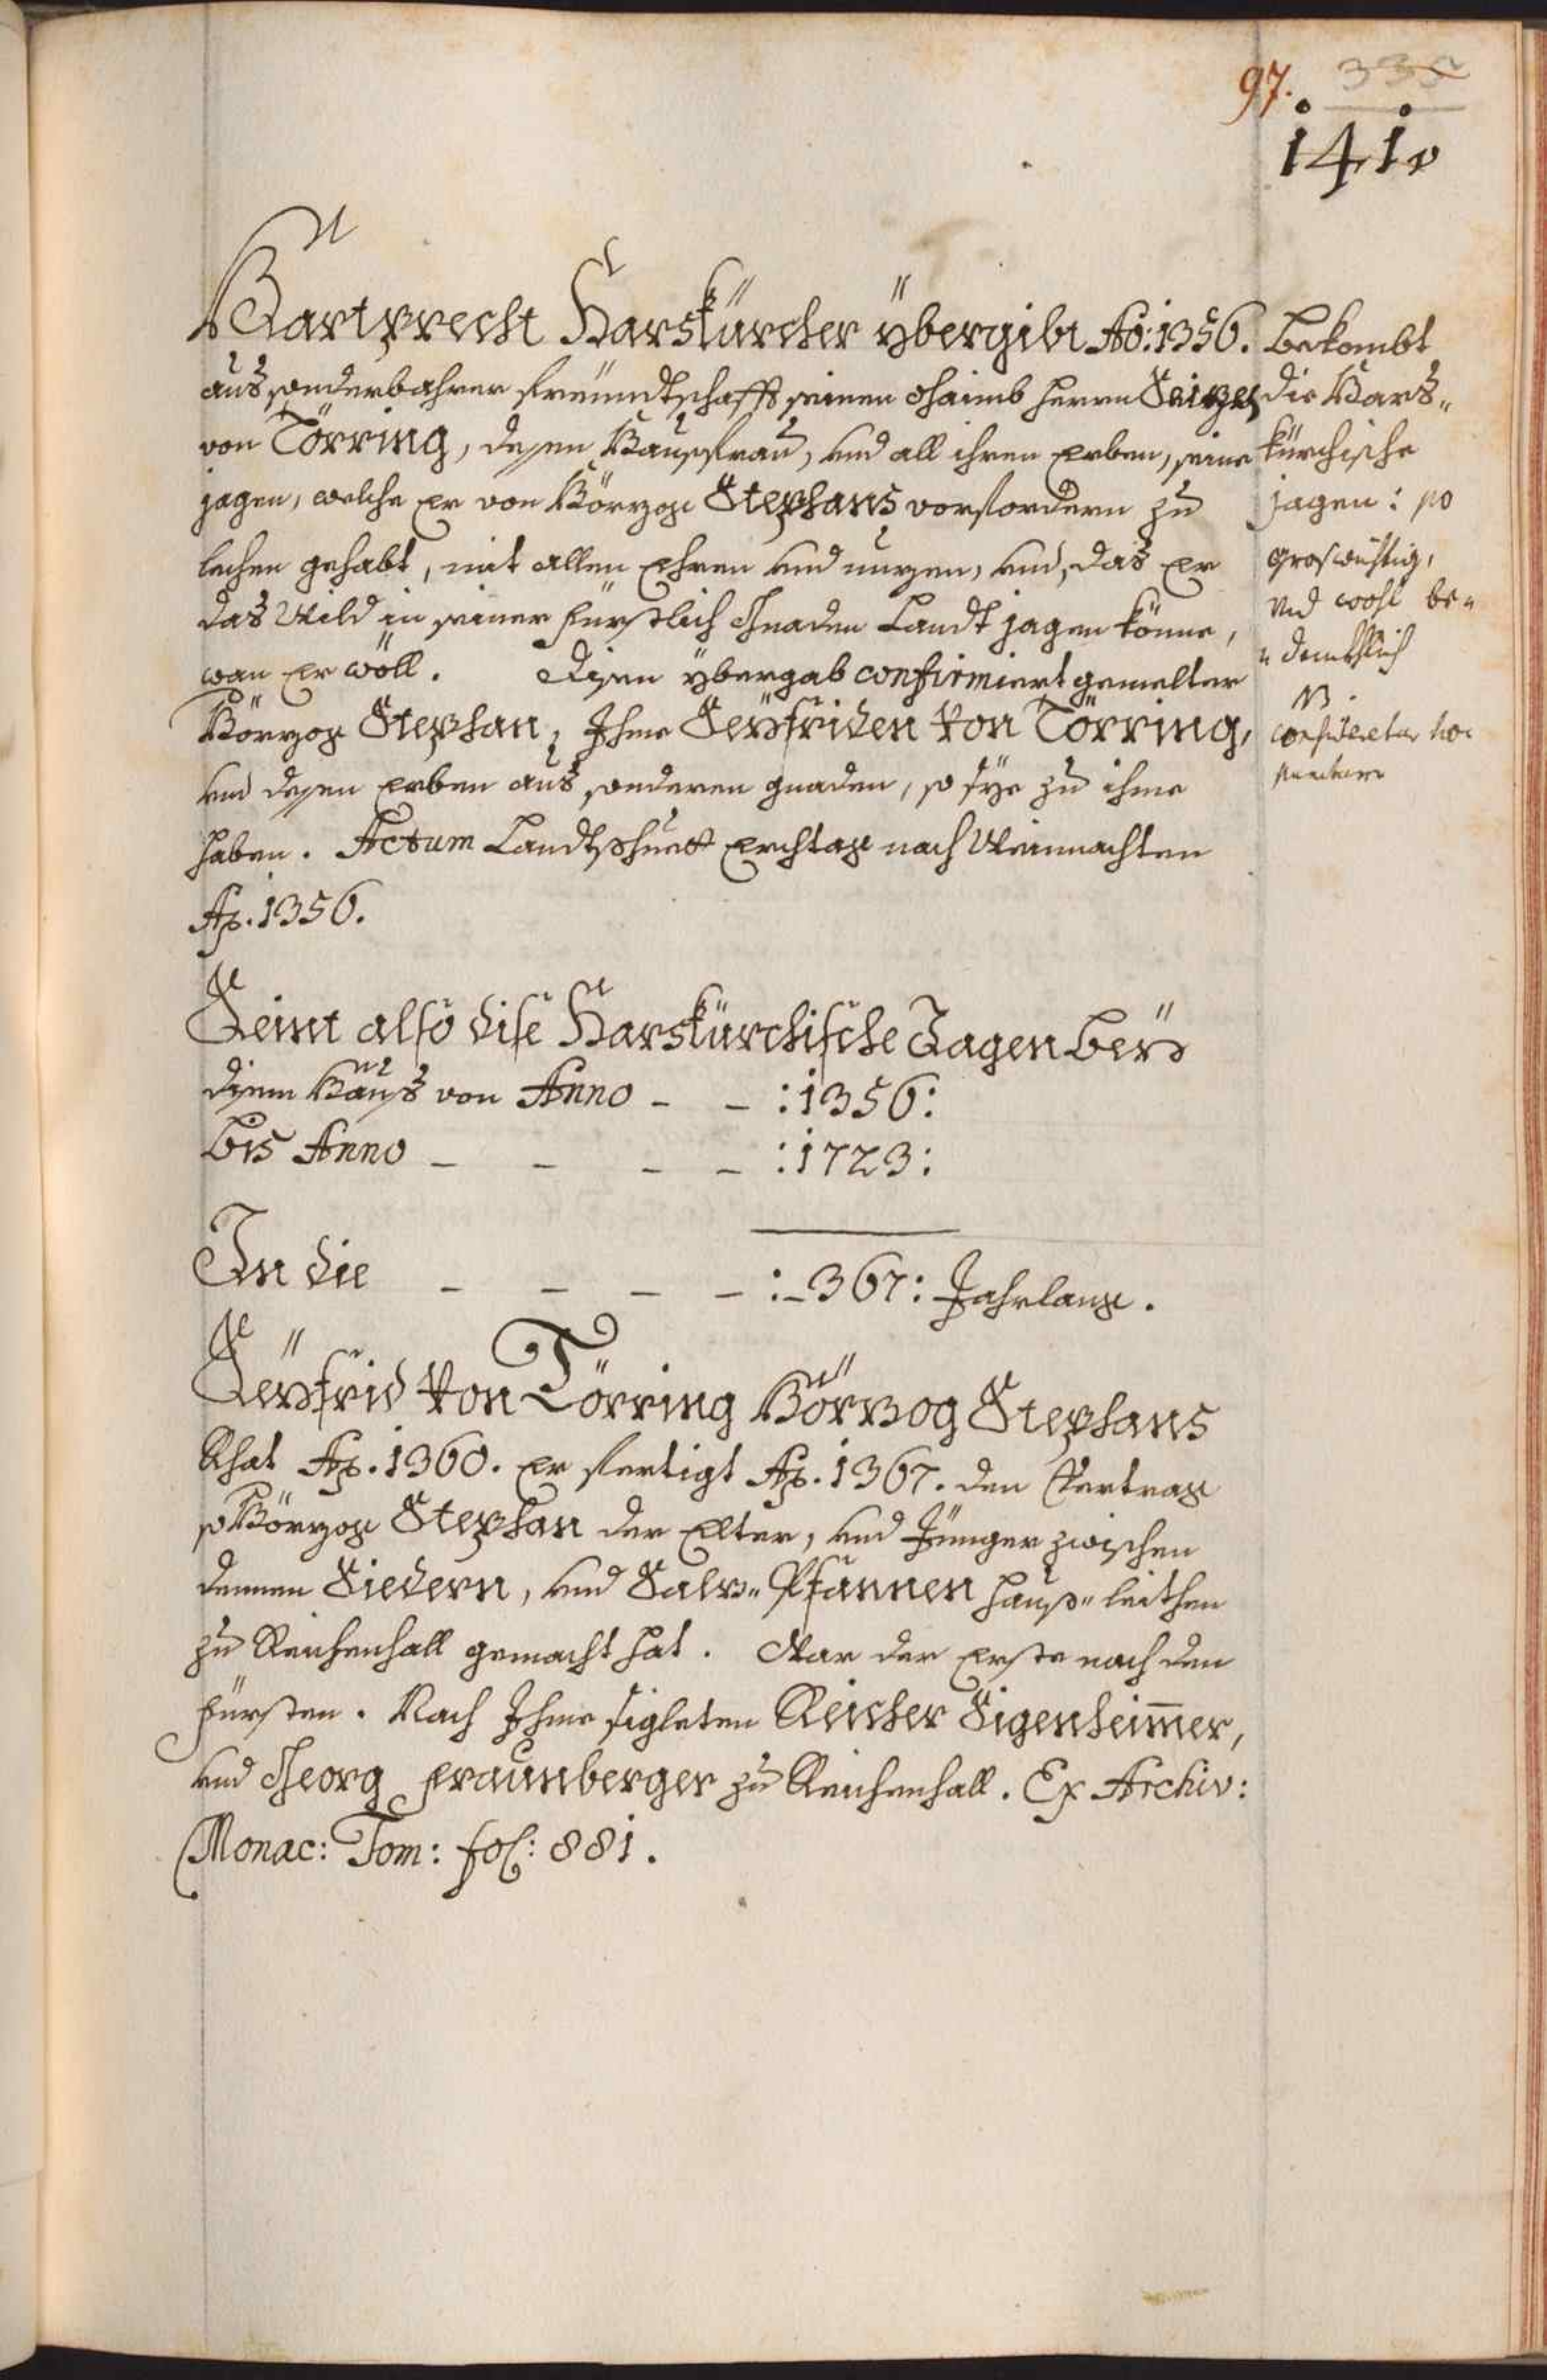 97. 335
141.
Hartprecht Harskürcher ÿbergibt Ao: 1356.
aus sonderbahrer freundtschafft seinen Ohaimb herrn Seizen
von Törring, desen Hausfrau, und all ihren Erben, seine
jagen, welche Er von Hörzog Stephans vorfordern zu
lechen gehabt, mit allen Ehren und nuzen, und, das Er
das Wild in seiner Fürstlich Gnaden Landt jagen könne,
wan Er wöll. Disen ÿbergab confirmiert gemelter
Hörzog Stephan, Ihme Seÿfriden Von Törring,
und desen Erben aus sonderen gnaden, so sÿe zu ihme
haben. Actum Landtshuett Erchtag nach Weinnachten
Ao. 1356.
Bekombt
die Hars„
kürchische
jagen: so
groswichtig,
und wohl be„
„denckhlich
NB.
consideretur hoc
Seint also dise Harskürchische Jagen beÿ
disem Haus von Anno - - :1356:
bis Anno - - - - :1723:
In die - - - - :-367: Jahrlang.
Seÿfrid Von Törring Hörzog Stephans
Rhat Ao. 1360. Er fertigt Ao. 1367. den Vertrag
so Hörzog Stephan der Elter, und Jünger zwischen
dennen Siedern, und Salz„ Pfannen Hauß„ leithen
zu Reichenhall gemacht hat. War der Erste nach den
Fürsten. Nach Ihme sigleten Reicher Sigenheimer,
und Georg Fraunberger zu Reichenhall. Ex Archiv:
Monac: Tom: fol: 881.